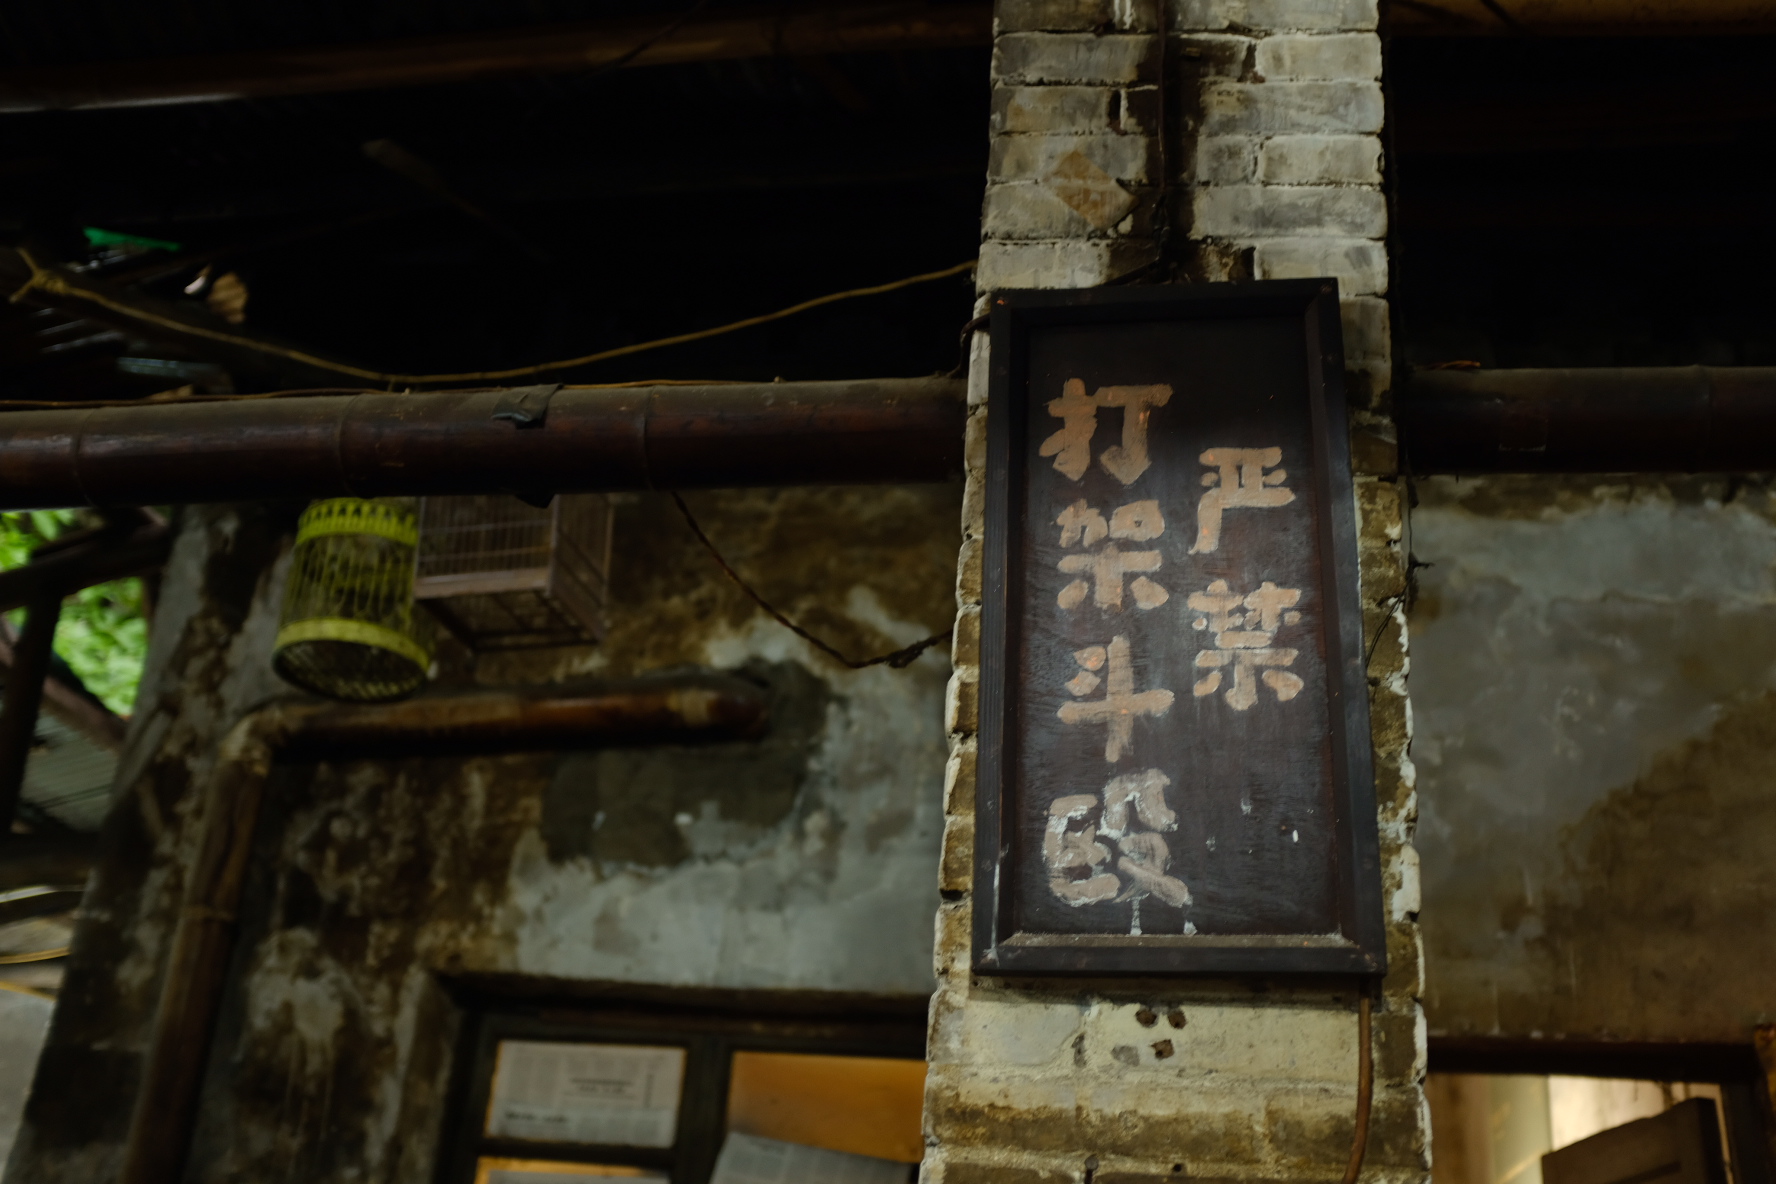 严禁
打架斗殴